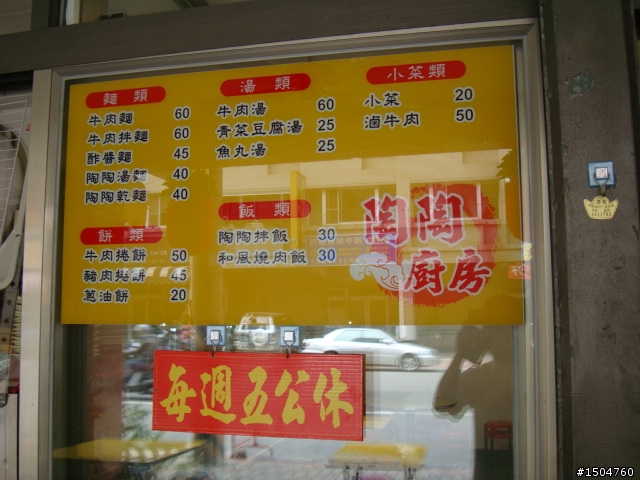 麵 類
牛肉麵 60
牛肉拌麵 60
酢醬麵 45
陶陶湯麵 40
陶陶乾麵 40
餅 類
牛肉捲餅 50
豬肉捲餅 45
蔥油餅 20
湯 類
牛肉湯 60
青菜豆腐湯 25
魚丸湯 25
飯 類
陶陶拌飯 30
和風燒肉飯 30
小菜類
小菜 20
滷牛肉 50
陶陶
廚房
每週五公休
#1504760